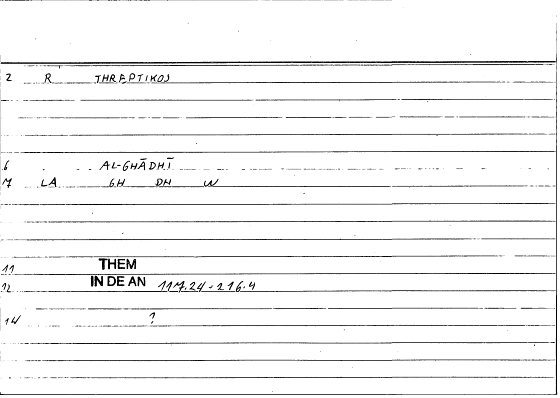 2 R THREPTIKOS
6 AL-GHĀDHĪ
17 LA GH DH W
11 THEM
12 IN DE AN 117.24 - 216.4
14 ?